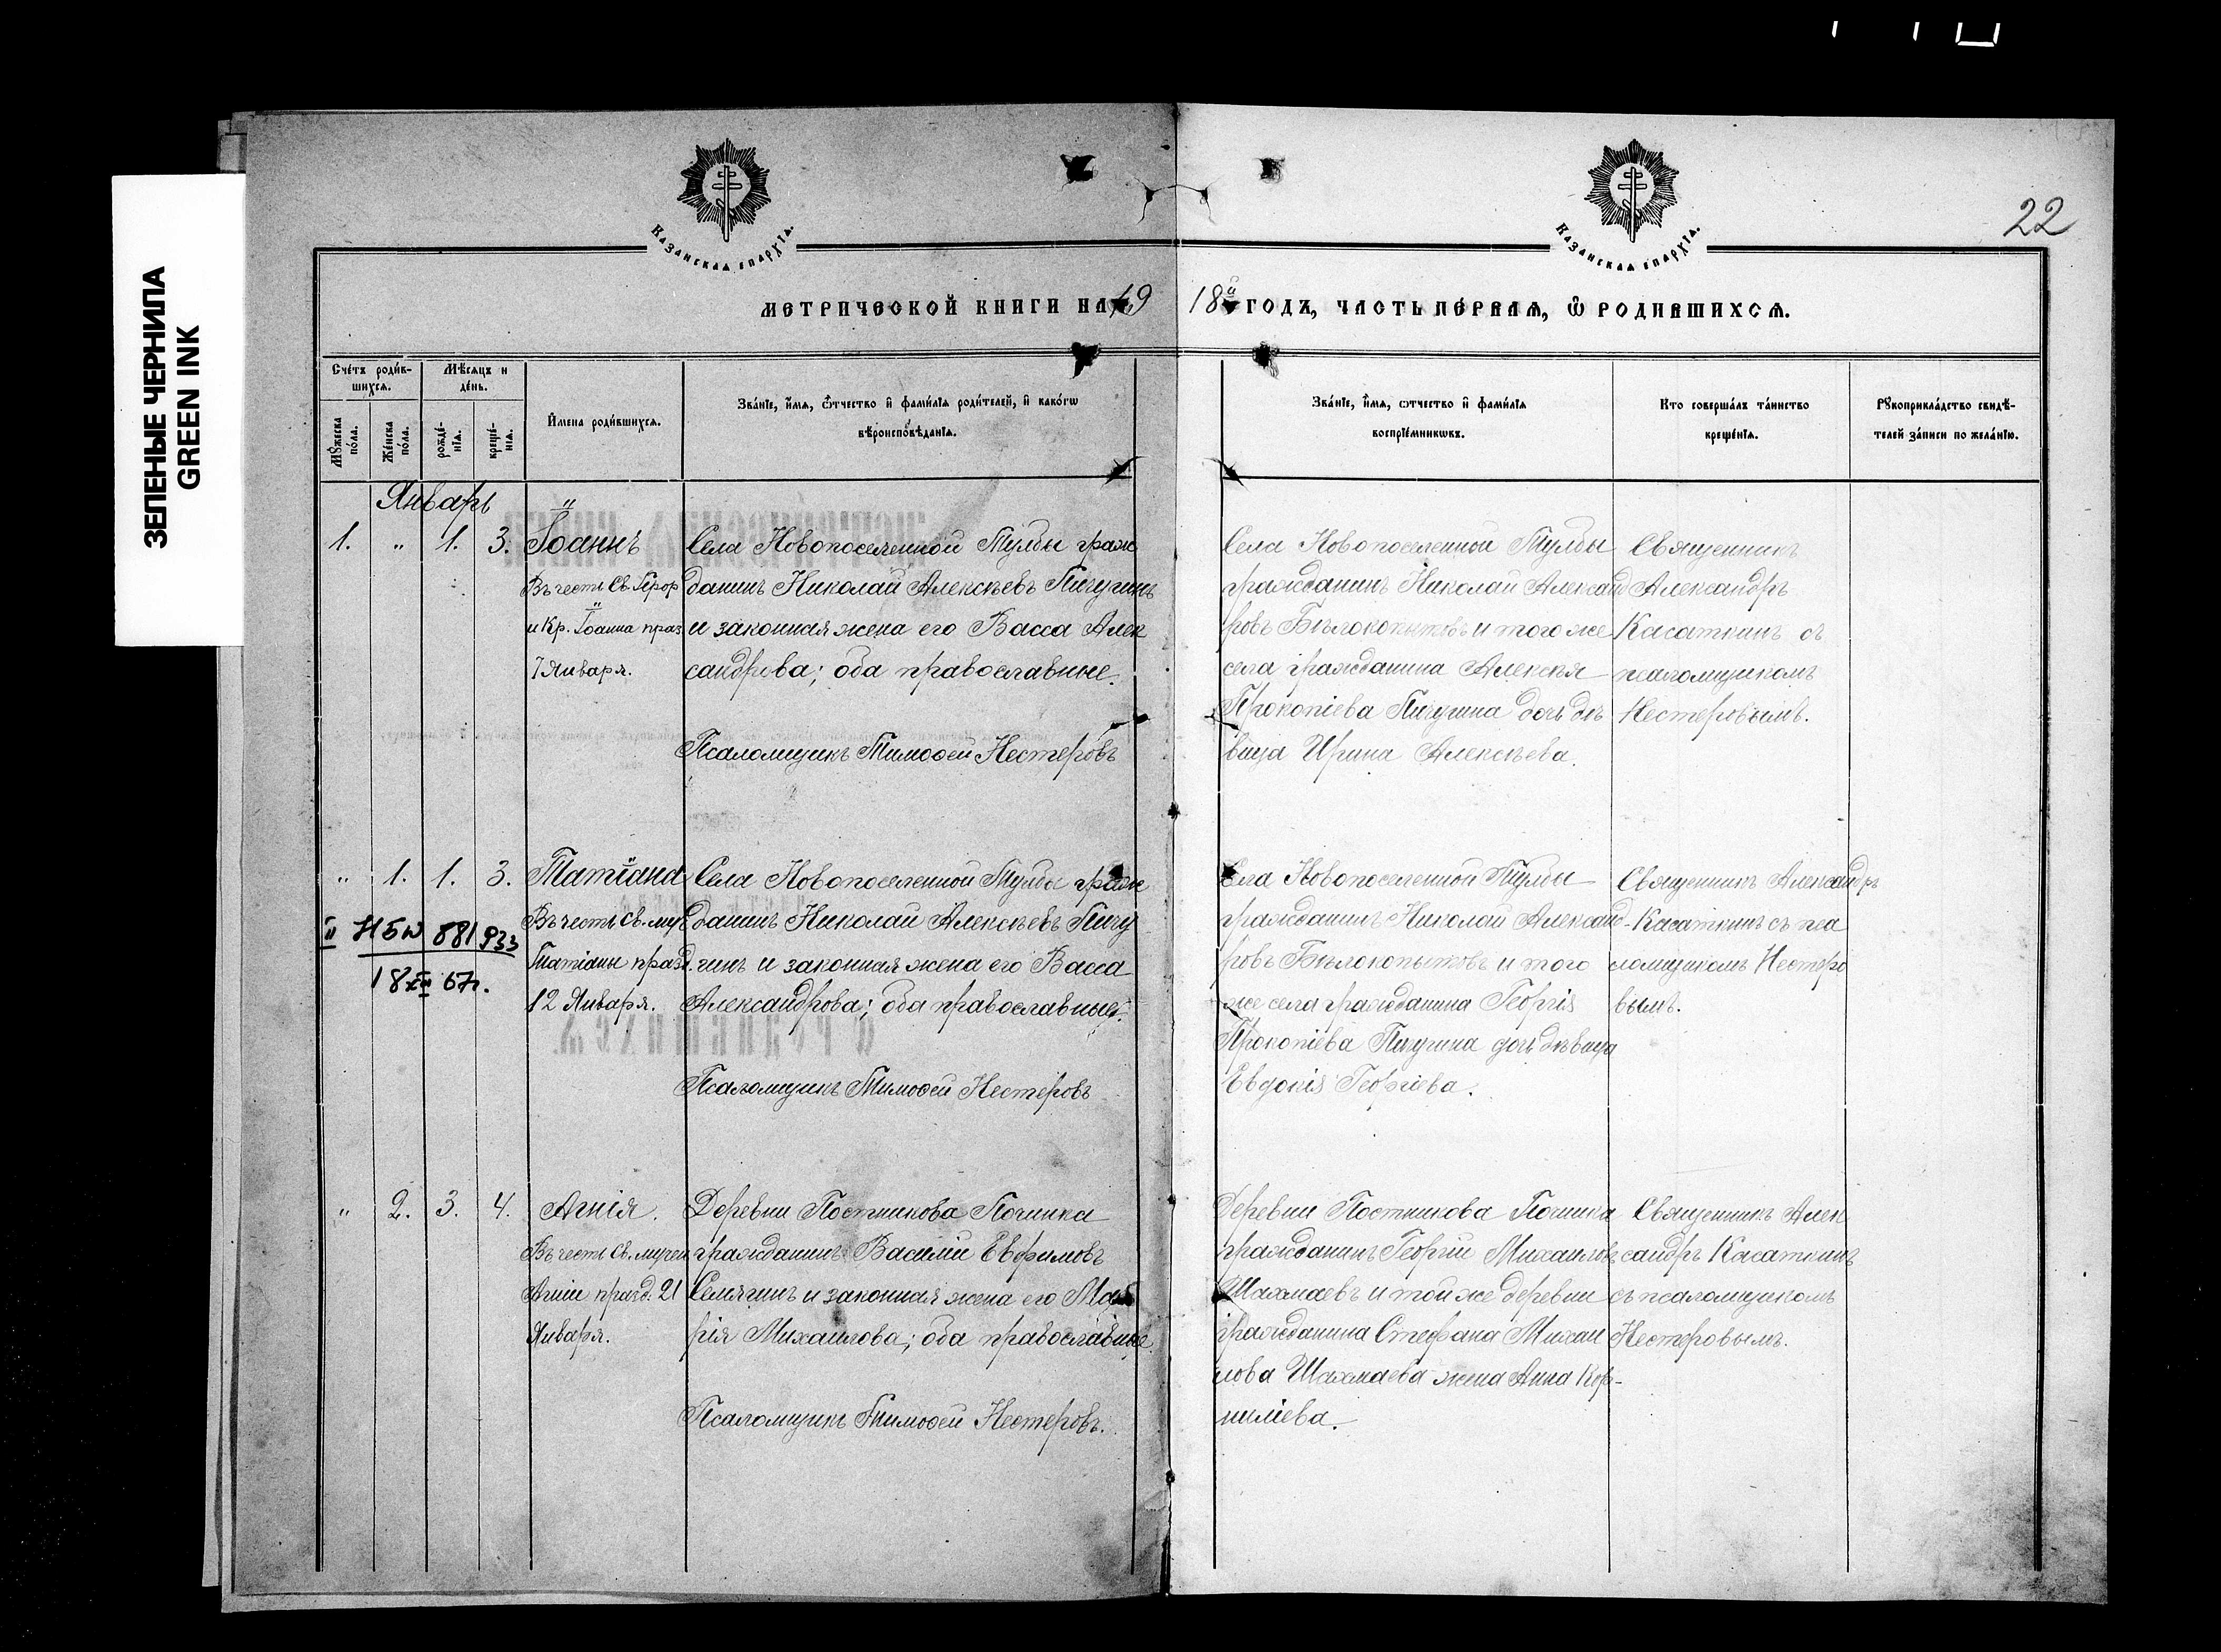 22
Казанская епархїа.
Казанская епархїа.
ЗЕЛЕНЫЕ ЧЕРНИЛА
GREEN INK
МЕТРИЧЕСКОЙ КНИГИ НА 19 18й ГОДЪ, ЧАСТЬ ПЕРВАЯ, Ѡ РОДИВШИХСЯ.
Счетъ родив-
шихся.
Мѣсяцъ и
день.
Мужеска
пола.
Женска
пола.
рожде-
нїя.
креще-
нїя.
Имена родившихся.
Званїе, имя, ѿчество и фамилїя родителей, и какогѡ
вѣроисповѣданїя.
Званїе, имя, ѿчество и фамилїя
воспрїемникѡвъ.
Кто совершалъ таинство
крещенїя.
Рукоприкладство свидѣ-
телей записи по желанїю.
Январь
1. " 1. 3. Іоаннъ
Въ честь Св. Прор
и Кр. Іоанна праз
7 Января.
Села Новопоселенной Тулбы граж
данинъ Николай Алексѣевъ Пичугинъ
и законная жена его Васса Алек
сандрова; оба православные.
Псаломщикъ Тимоѳей Нестеровъ
Села Новопоселенной Тулбы
гражданинъ Николай Александ
ровъ Бѣлокопытовъ и того же
села гражданина Алексѣя
Прокопіева Пичугина дочь дѣ
вица Ирина Алексѣева.
Священникъ
Александръ
Касаткинъ съ
псаломщикомъ
Нестеровымъ.
" 1. 1. 3. Татіана
Въ честь Св. муч
Татіаны празд.
12 Января.
II НБ 881933
18 XII 67г.
Села Новопоселенной Тулбы граж
данинъ Николай Алексѣевъ Пичу
гинъ и законная жена его Васса
Александрова; оба православные.
Псаломщикъ Тимоѳей Нестеровъ
Села Новопоселенной Тулбы
гражданинъ Николай Александ
ровъ Бѣлокопытовъ и того
же села гражданина Георгія
Прокопіева Пичугина дочь дѣвица
Евдокія Георгіева.
Священникъ Александръ
Касаткинъ съ пса
ломщикомъ Нестеро
вымъ.
" 2. 3. 4. Агнія.
Въ честь Св. мучен
Агніи празд. 21
Января.
Деревни Постникова Починка
гражданинъ Василій Евфимовъ
Семягинъ и законная жена его Ма
рія Михаилова; оба православные.
Псаломщикъ Тимоѳей Нестеровъ.
Деревни Постникова Починка
гражданинъ Георгій Михаиловъ
Шахмаевъ и той же деревни
гражданина Стефана Михаи
лова Шахмаева жена Анна Кор-
ниліева.
Священникъ Алек
сандръ Касаткинъ
съ псаломщикомъ
Нестеровымъ.